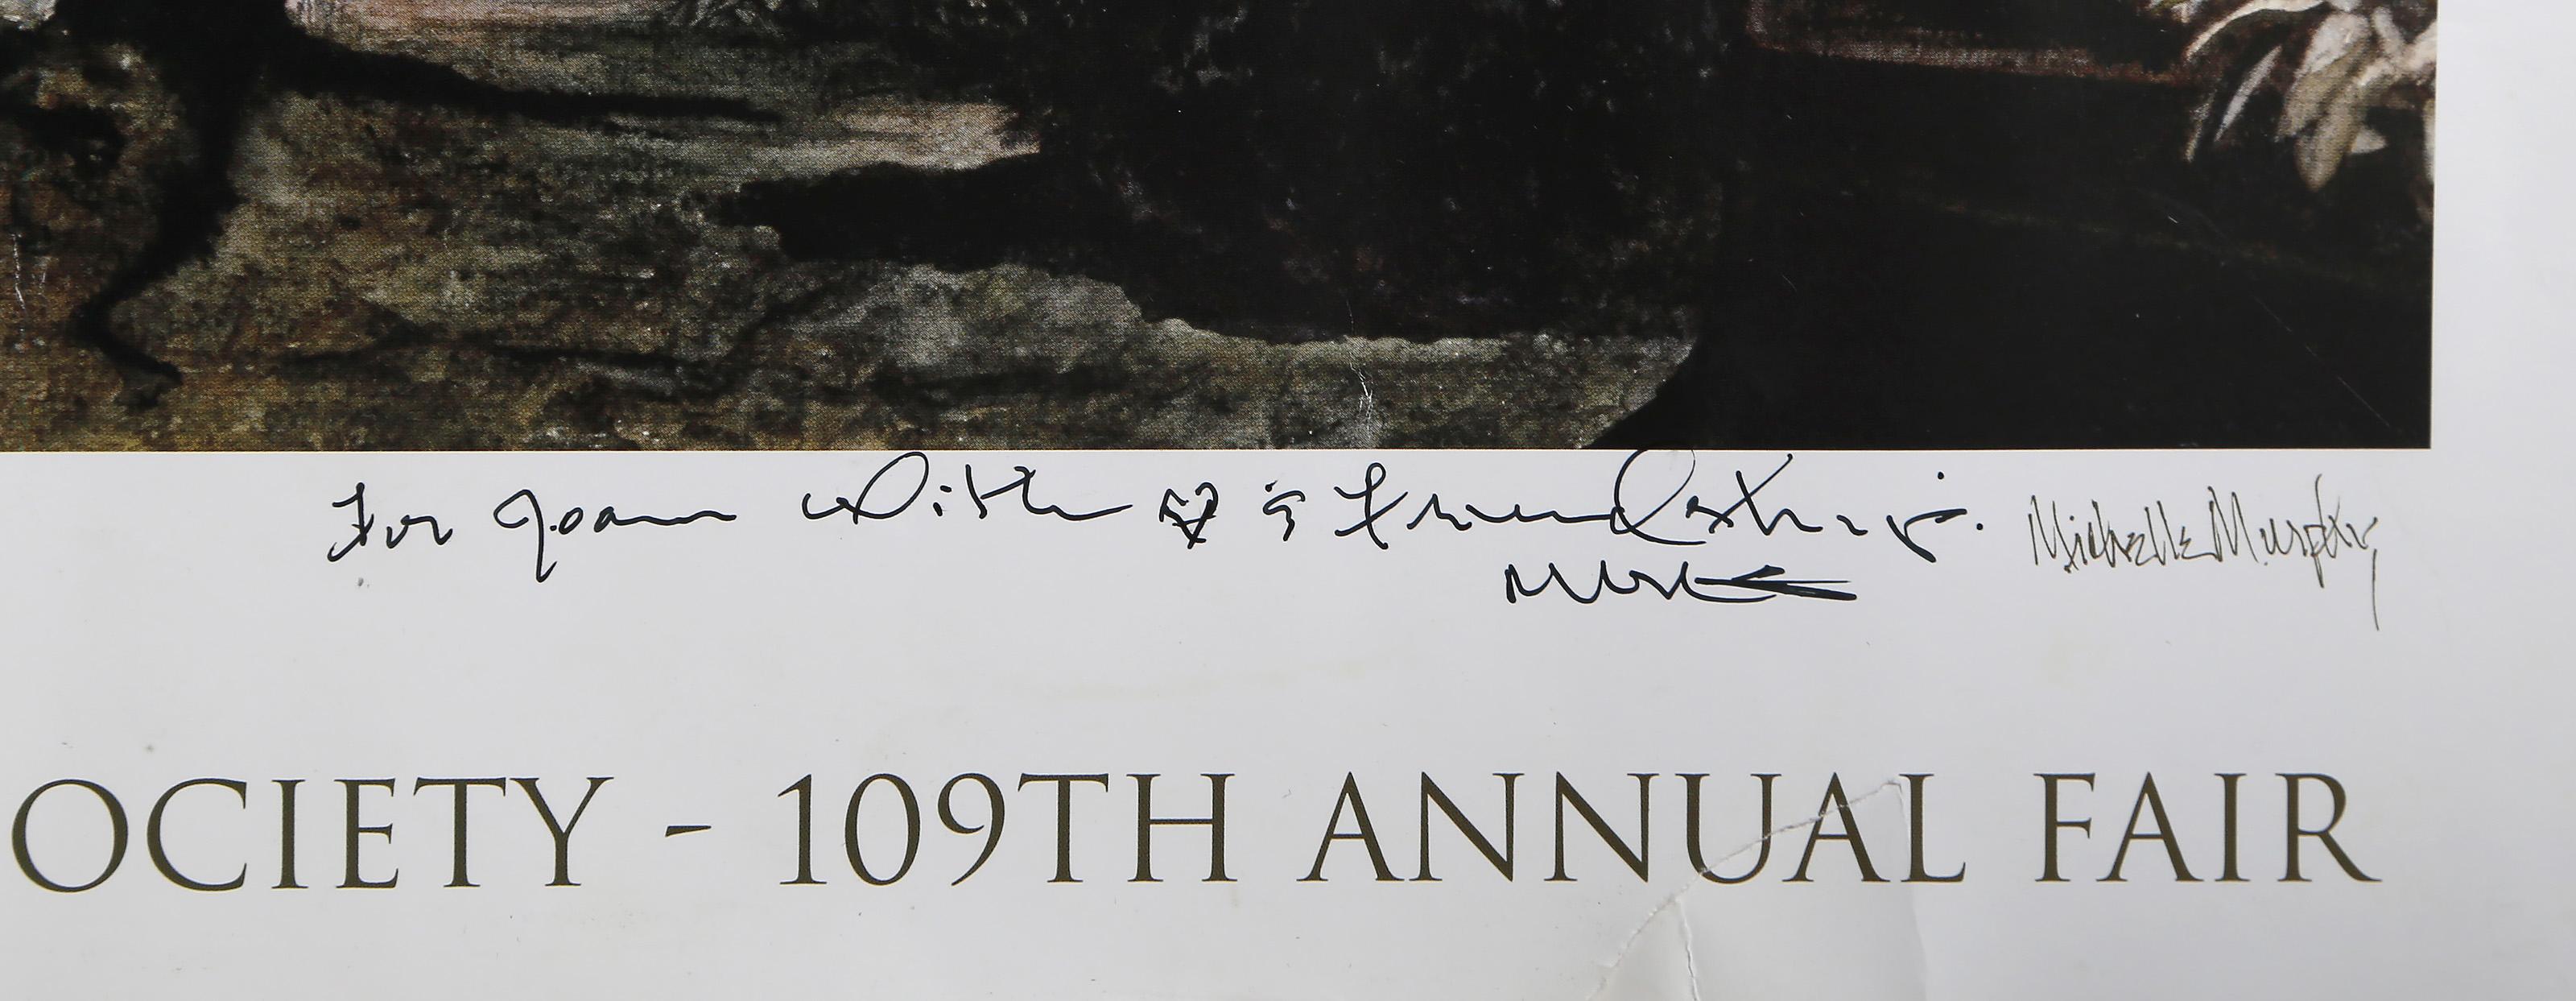 For Joan with & friendship.
Michelle Murphy
OCIETY - 109TH ANNUAL FAIR